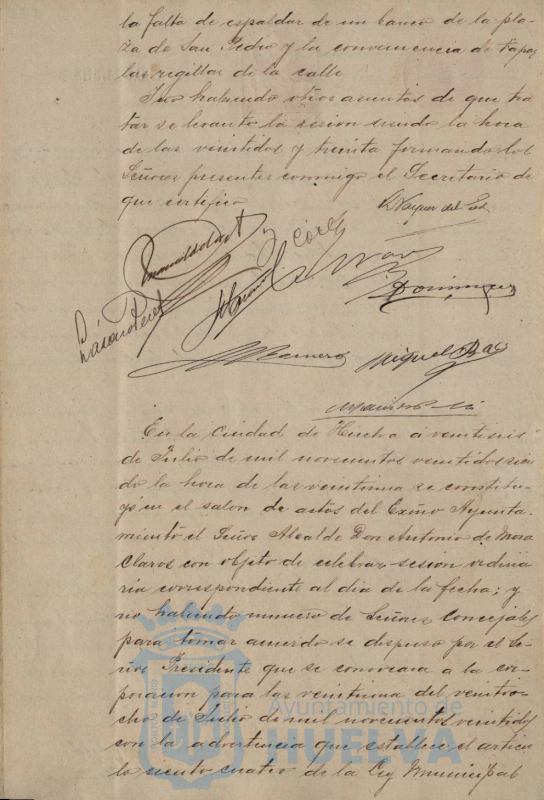 la falta de espaldar de un banco de la pla-
za de San Pedro y la conveniencia de tapar
las regillas de la calle
Y no habiendo otros asuntos de que tra
tar se levantó la sesion siendo la hora
de las veintidos y treinta firmando los
Señores presentes conmigo el Secretario de
que certifico
Lázaro Perez
Miguel Baez
En la Ciudad de Huelva á veintiseis
de Julio de mil novecientos veintidos sien
do la hora de las veintiuna se constitu-
yó en el salon de actos del Excmo Ayunta-
miento el Señor Alcalde Don Antonio de Mora
Claros con objeto de celebrar sesion ordina
ria correspondiente al dia de la fecha; y
no habiendo numero de Señores Concejales
para tomar acuerdo se dispuso por el Se-
ñor Presidente que se convocara a la cor-
poracion para las veintiuna del veintio-
cho de Julio de mil novecientos veintidos
con la advertencia que establece el articu
lo ciento cuatro de la Ley Municipal
Ayuntamiento de
HUELVA